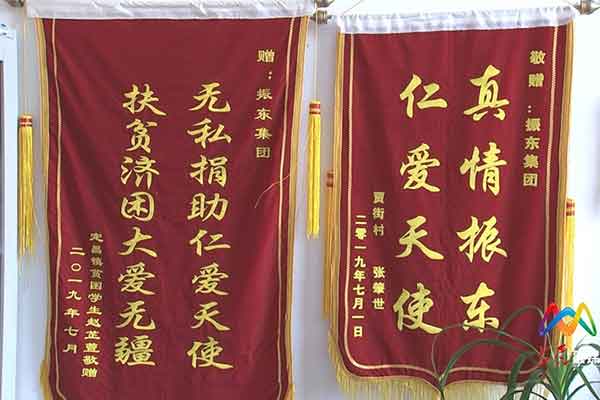 赠：振东集团
无私捐助仁爱天使
扶贫济困大爱无疆
定昌镇贫困学生赵芷萱敬赠
二〇一九年七月
敬赠：振东集团
真情振东
仁爱天使
贾街村 张肇世
二零一九年七月一日